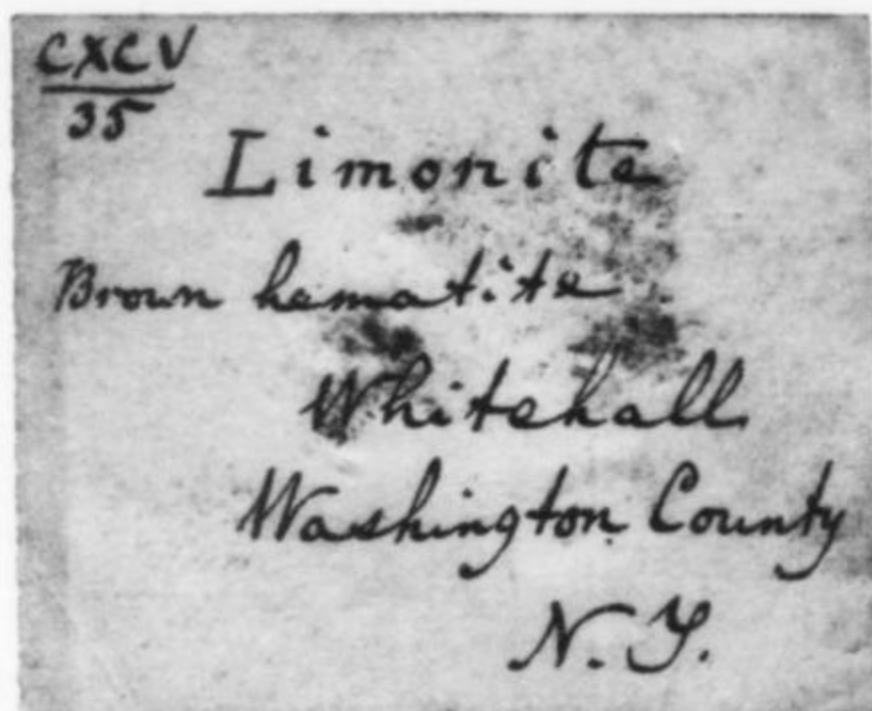 CXCV
35
Limonite
Brown hematite
Whitehall
Washington County
N.Y.